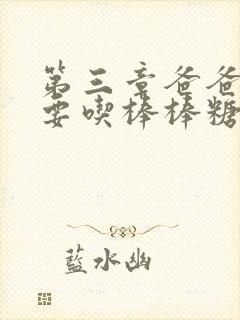 第三章爸爸
要喫棒棒糖
藍水幽